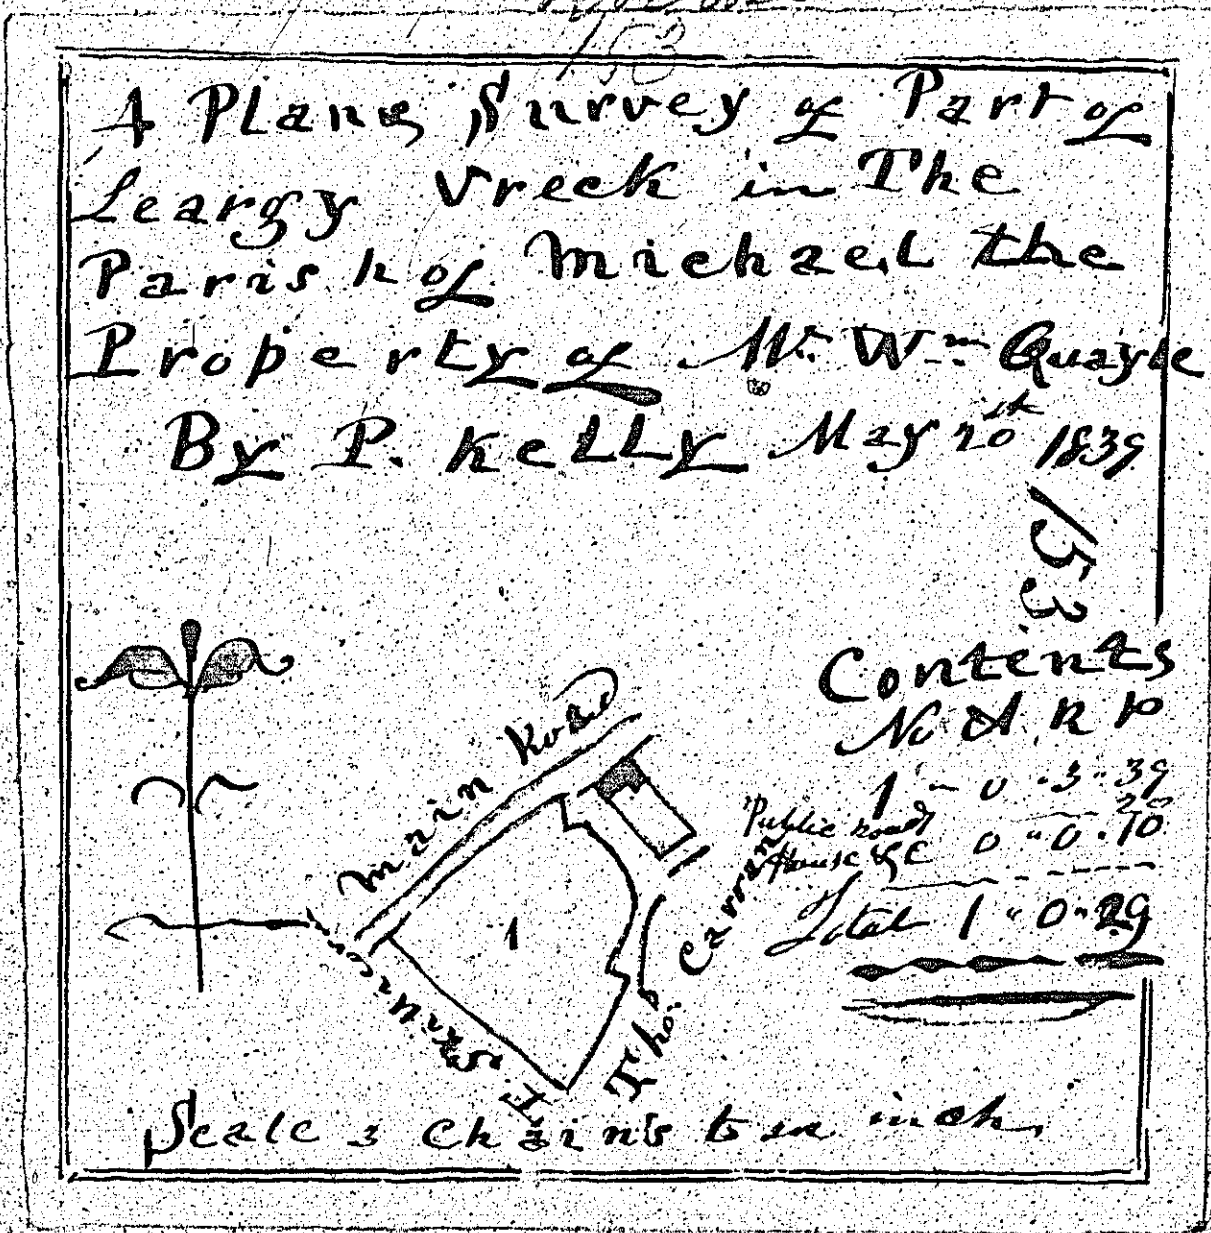 153
A Plane Survey of Part of
Leargy Vreck in The
Parish of Michael the
Property of Mr. Wm Quayle
By P. Kelly May 20th 1839
153
Contents
No A. R P
1 - 0 " 3 " 39
Public road
House &c 0 " 0 " 30
Total 1 " 0 " 29
Main Road
1
Thos. Curran
Skinner
Scale 3 Chains to an inch